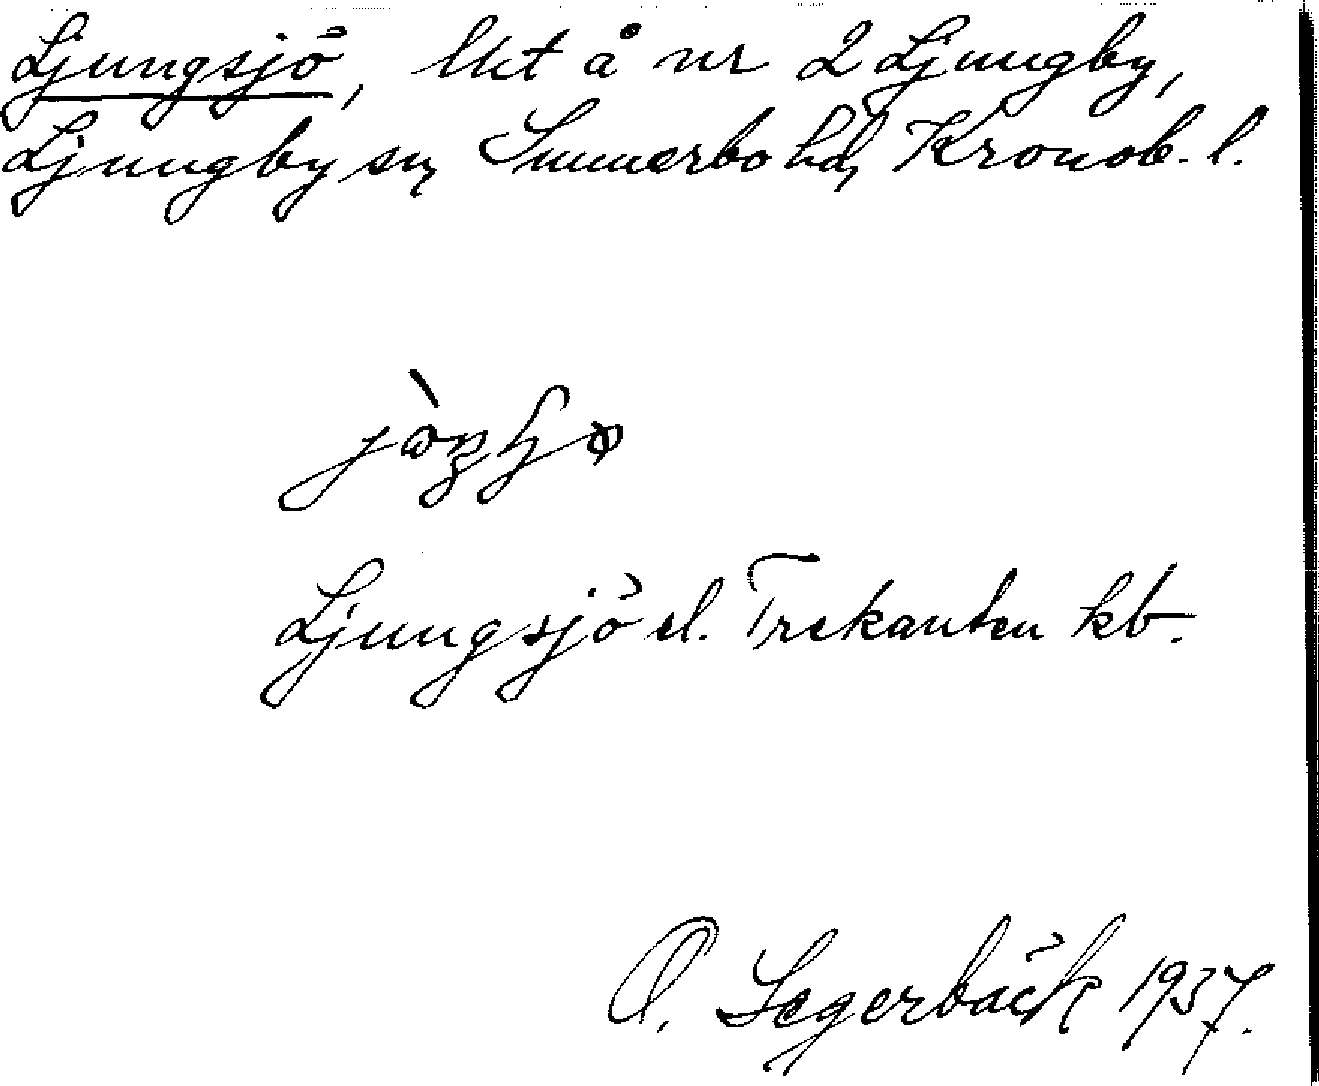 Ljungsjö, lht å nr 2 Ljungby,
Ljungby sn, Sunnerbo hd, Kronob. l.
Ljungsjö el. Trekanten kb.
O. Segerbäck 1937.